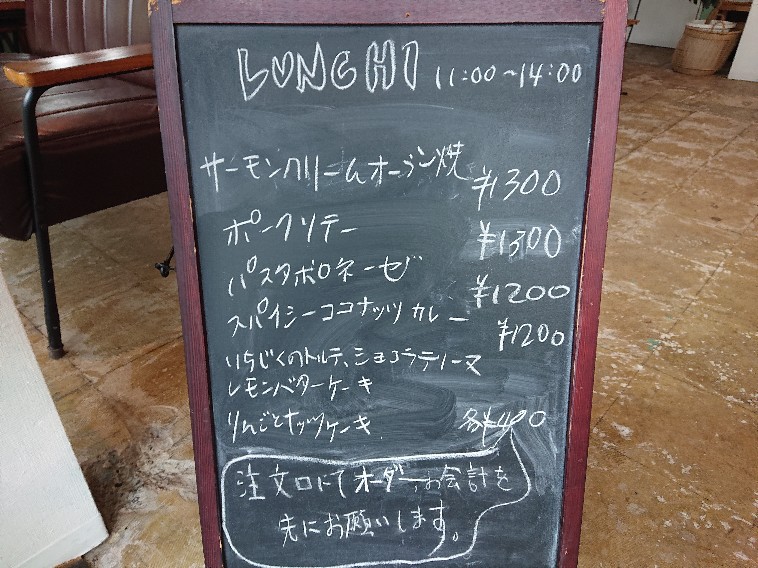 LUNCH 11:00〜14:00
サーモンクリームオーブン焼 ¥1300
ポークソテー ¥1300
パスタボロネーゼ ¥1200
スパイシーココナッツカレー ¥1200
いちじくのトルテ、ショコラテリーヌ
レモンバターケーキ
りんごとナッツケーキ 各¥490
注文口にてオーダー、お会計を
先にお願いします。